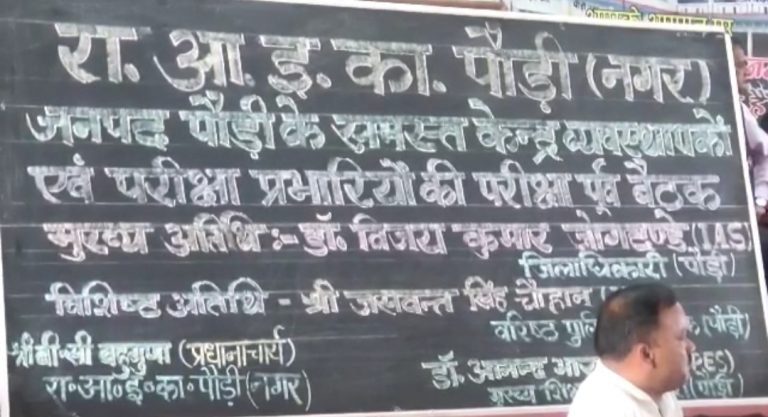 रा. आ. इ. का. पौड़ी (नगर)
जनपद पौड़ी के समस्त केन्द्र व्यवस्थापकों
एवं परीक्षा प्रभारियों की परीक्षा पूर्व बैठक
मुख्य अतिथि :- डॉ. विजय कुमार जोगदण्डे (IAS)
जिलाधिकारी (पौड़ी)
विशिष्ट अतिथि - श्री जसवन्त सिंह चौहान
वरिष्ठ (पौड़ी)
श्री बी.सी बहुगुणा (प्रधानाचार्य)
रा॰आ॰इ॰का॰पौड़ी (नगर)
डॉ. आनन्द
मुख्य